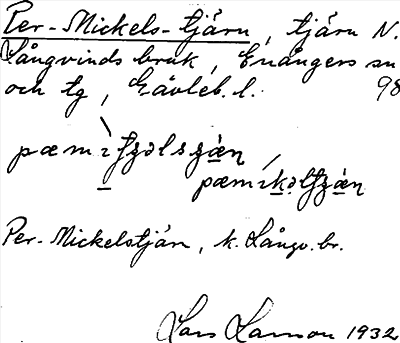 Per-Mickels-tjärn, tjärn N.
Långvinds bruk, Enångers sn
och tg, Gävleb. l. 98
Per-Mickelstjärn, k. Långv. br.
Lars Larsson 1932